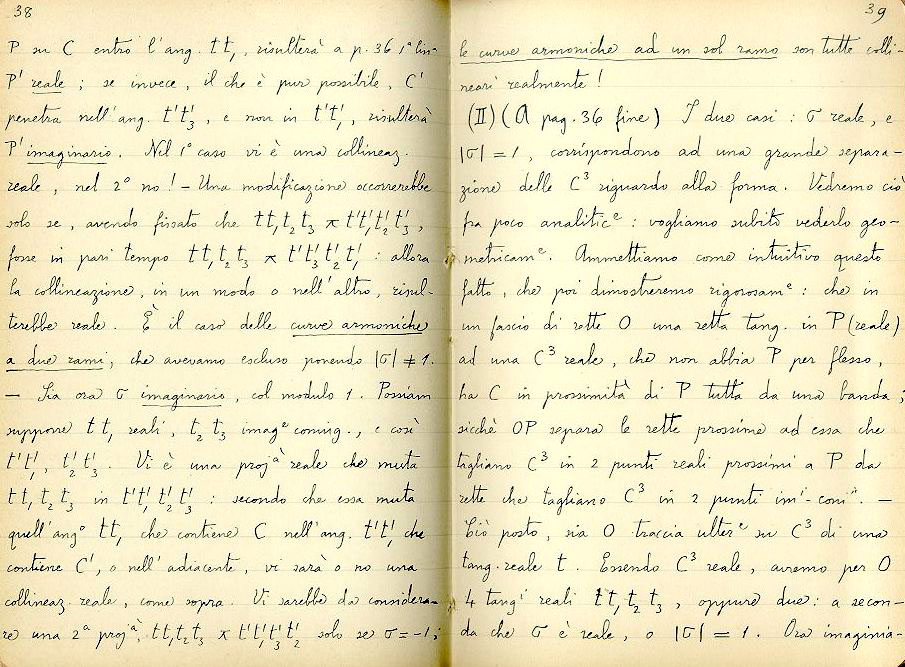 38
P su C entro l'ang. tt₁, risulterà a p. 36 1ª lin-
P' reale ; se invece, il che è pur possibile, C'
penetra nell'ang. t't'₃, e non in t't'₁, risulterà
P' imaginario. Nel 1° caso vi è una collineaz.
reale, nel 2° no ! – Una modificazione occorrerebbe
solo se, avendo fissato che tt₁t₂t₃ ⊼ t't'₁t'₂t'₃,
fosse in pari tempo tt₁t₂t₃ ⊼ t't'₃t'₂t'₁ : allora
la collineazione, in un modo o nell'altro, risul-
terebbe reale. È il caso delle curve armoniche
a due rami, che avevamo escluso ponendo |σ| ≠ 1.
— Sia ora σ imaginario, col modulo 1. Possiam
supporre tt₁ reali, t₂t₃ imagᵉ coniug., e così
t't'₁, t'₂t'₃. Vi è una projᵃ reale che muta
tt₁t₂t₃ in t't'₁t'₂t'₃ : secondo che essa muta
quell'angᵒ tt₁ che contiene C nell'ang. t't'₁ che
contiene C', o nell'adiacente, vi sarà o no una
collineaz. reale, come sopra. Vi sarebbe da considera-
re una 2ª projᵃ, tt₁t₂t₃ ⊼ t't'₁t'₃t'₂ solo se σ = -1;
39
le curve armoniche ad un sol ramo son tutte colli-
neari realmente !
(II) (A pag. 36 fine) I due casi : σ reale, e
|σ| = 1, corrispondono ad una grande separa-
zione delle C³ riguardo alla forma. Vedremo ciò
fra poco analiticᵉ : vogliamo subito vederlo geo-
metricamᵉ. Ammettiamo come intuitivo questo
fatto, che poi dimostreremo rigorosamᵉ : che in
un fascio di rette O una retta tang. in P (reale)
ad una C³ reale, che non abbia P per flesso,
ha C in prossimità di P tutta da una banda ;
sicchè OP separa le rette prossime ad essa che
tagliano C³ in 2 punti reali prossimi a P da
rette che tagliano C³ in 2 punti im¹-coniⁿ. —
Ciò posto, sia O traccia ulterᵉ su C³ di una
tang. reale t. Essendo C³ reale, avremo per O
4 tangⁱ reali tt₁t₂t₃, oppure due : a secon-
da che σ è reale, o |σ| = 1. Ora imaginia-